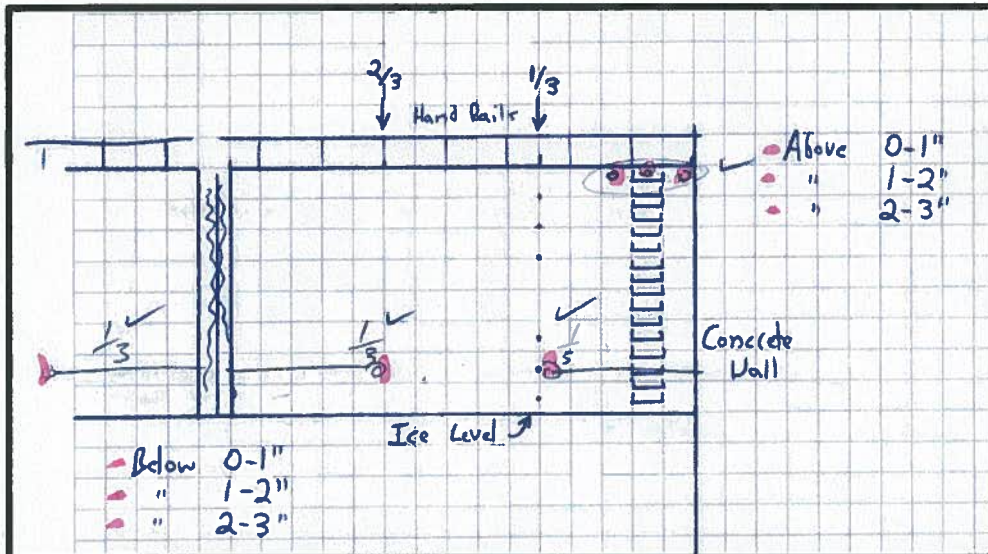 2/3
1/3
Hand Rails
Above 0-1"
" 1-2"
" 2-3"
1/3
1/3
1/5
Concrete
Wall
Ice Level
Below 0-1"
" 1-2"
" 2-3"